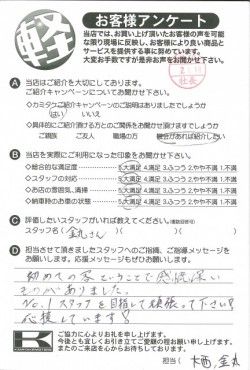 軽
お客様アンケート
当店では、お買い上げ頂いたお客様の声を可能
な限り現場に反映し、お客様により良い商品と
サービスを提供する事に努めています。
大変お手数ですが是非お声をお聞かせ下さい。
社長
A 当店はご紹介を大切にしております。
ご紹介キャンペーンについてお聞かせ下さい。
◇カミタケご紹介キャンペーンのご説明はありましたでしょうか
はい いいえ
◇具体的にご紹介頂ける方とのご関係をお聞かせ頂けますでしょうか
ご親族 ご友人 職場の方 機会があれば紹介したい
B 当店を実際にご利用になった印象をお聞かせ下さい。
◇総合的な満足度 5.大満足 4.満足 3.ふつう 2.やや不満 1.不満
◇スタッフの対応 5.大満足 4.満足 3.ふつう 2.やや不満 1.不満
◇お店の雰囲気、清掃 5.大満足 4.満足 3.ふつう 2.やや不満 1.不満
◇納車時のお車の状態 5.大満足 4.満足 3.ふつう 2.やや不満 1.不満
C 評価したいスタッフがいれば教えてください。(複数回答可)
スタッフ名( 金丸さん )
D 担当させて頂きましたスタッフへのご指摘、ご指導メッセージを
お願いします。応援メッセージもぜひお願いします。
初めての客ということで感慨深い
ものがありました。
No.1スタッフを目指して頑張って下さい!
応援しています!
K
ご協力に心よりお礼を申し上げます。
今後とも宜しくお引き立てご愛顧の程お願い申し上げます。
またのご来店を心からお待ちしております。
担当( 大西、金丸 )